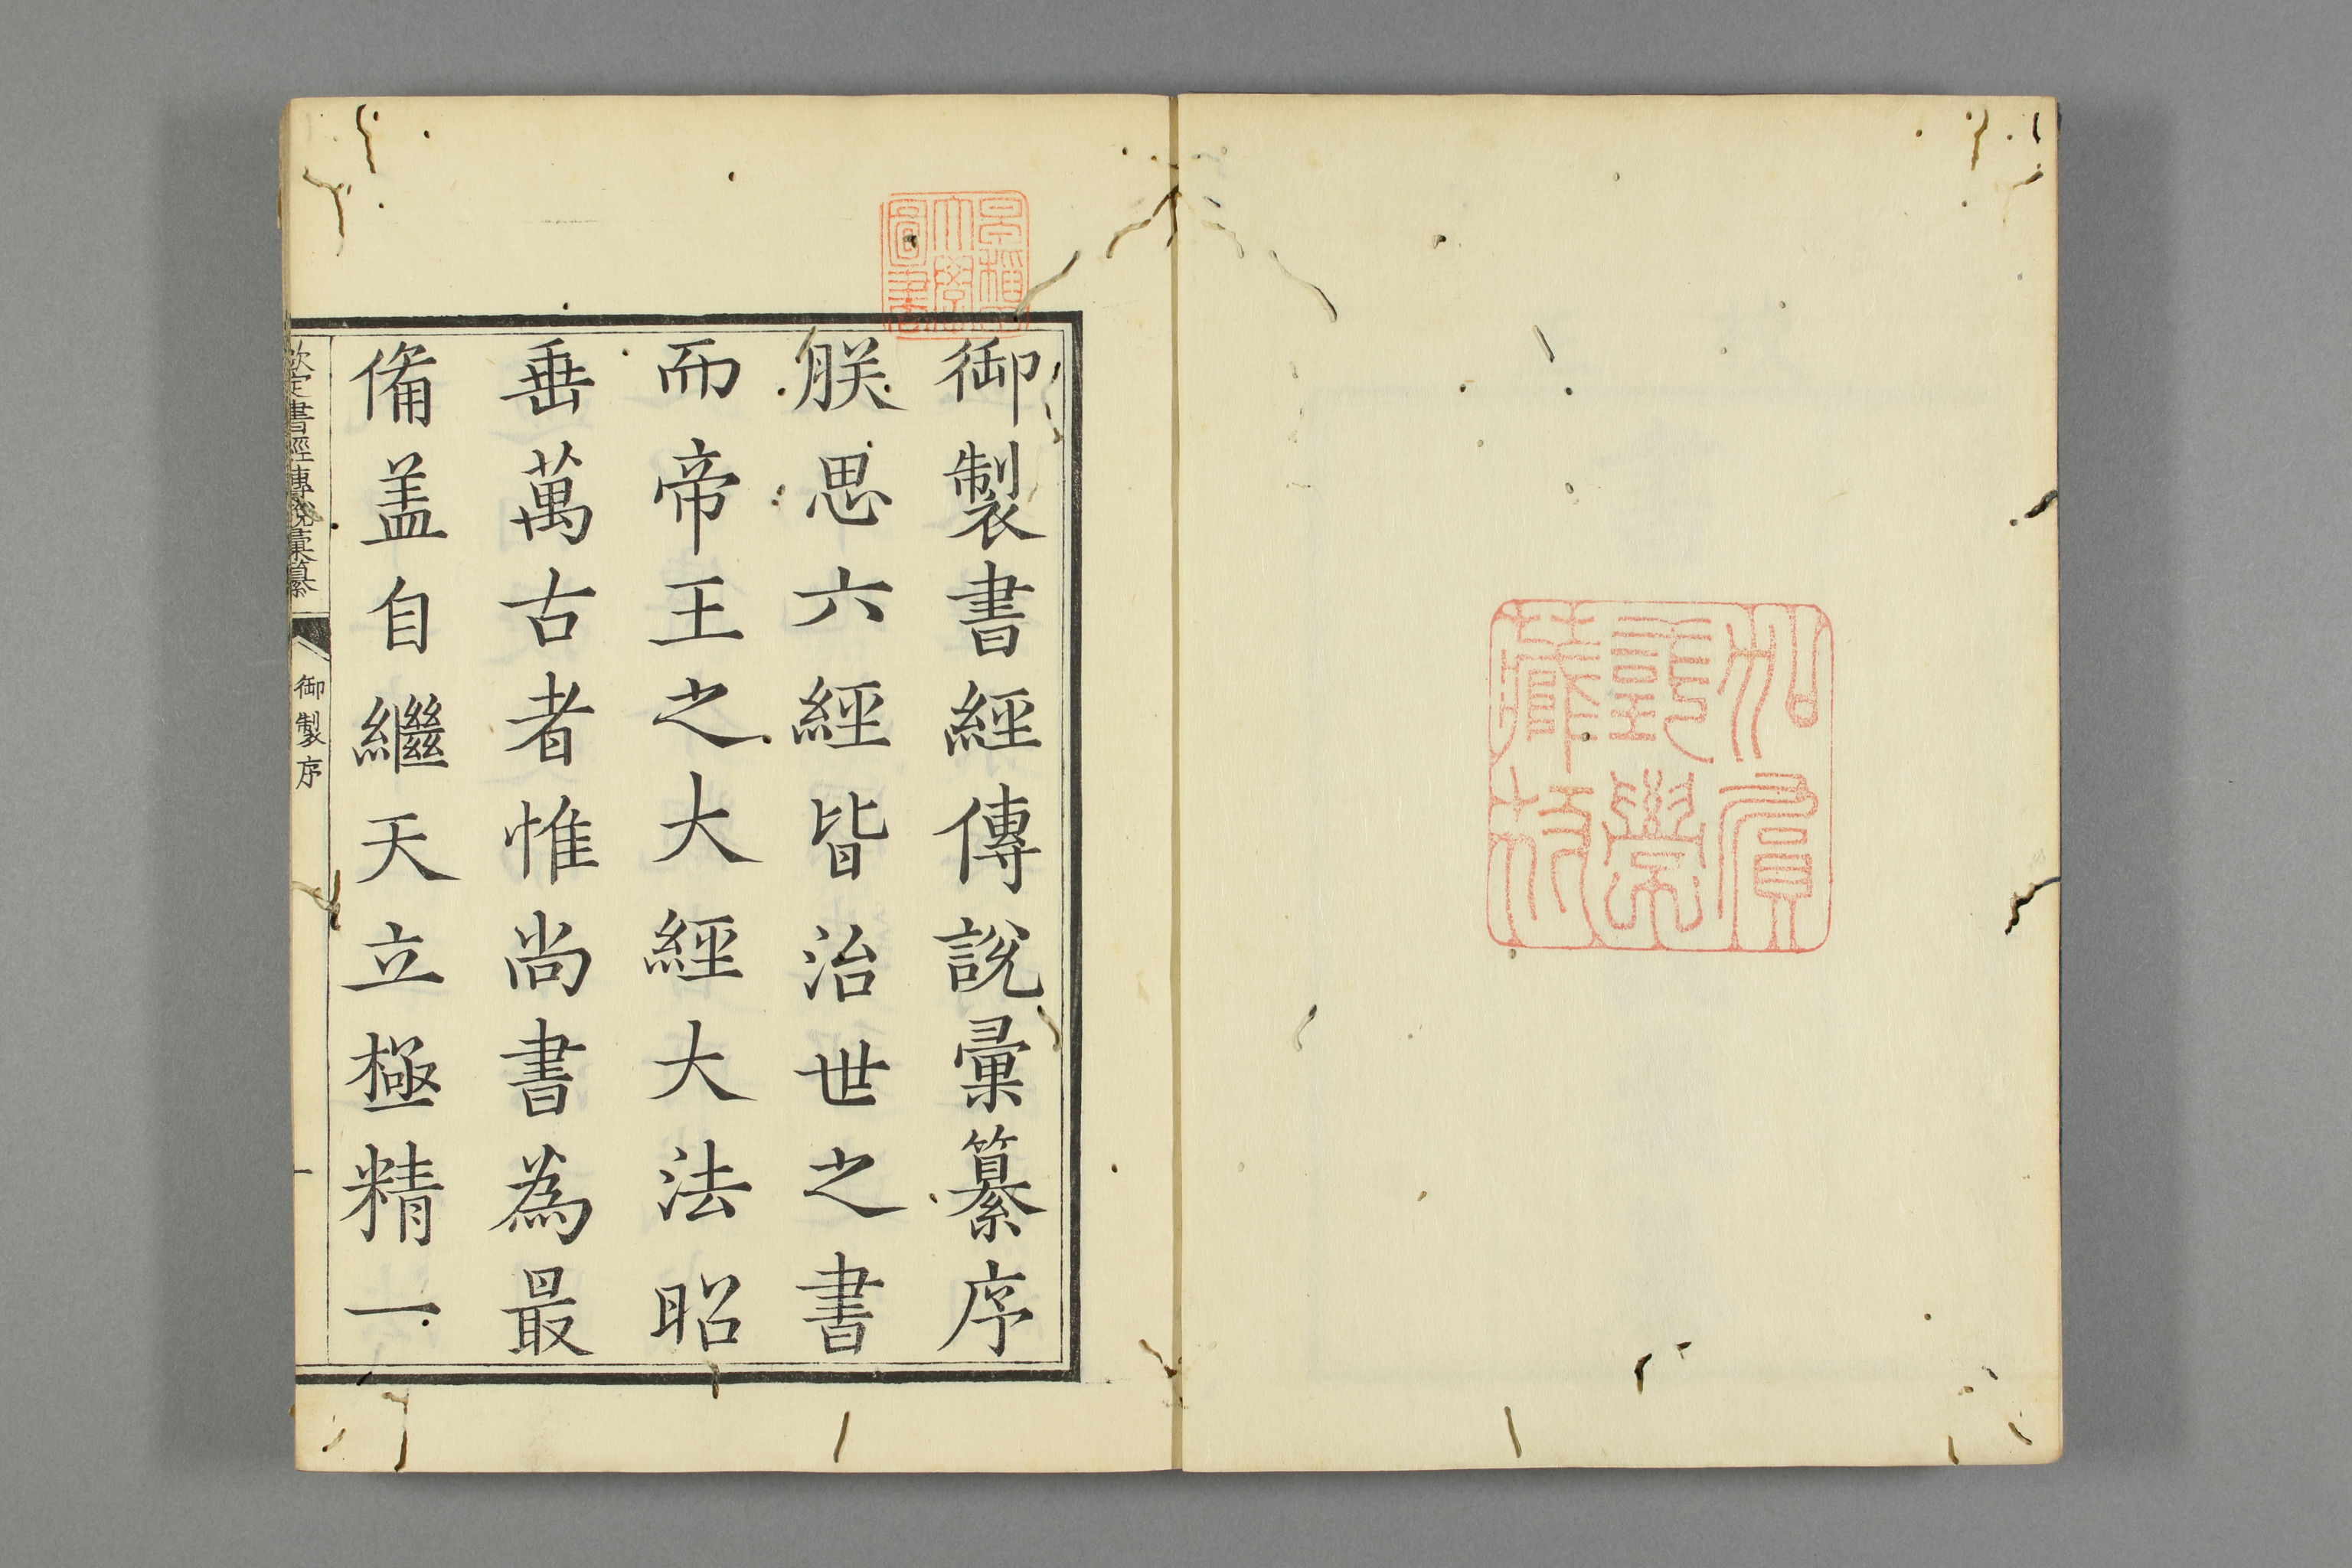 早稻田
大學
圖書
御製書經傳說彙纂序
朕思六經皆治世之書
而帝王之大經大法昭
垂萬古者惟尚書為最
備盖自繼天立極精一
欽定書經傳說彙纂 御製序 一
加賀
學
藏板